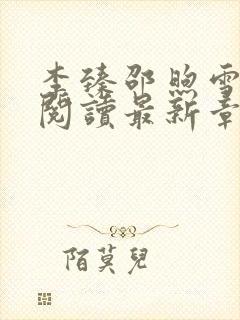 李臻邵煦雪
閱讀最新章
陌莫兒